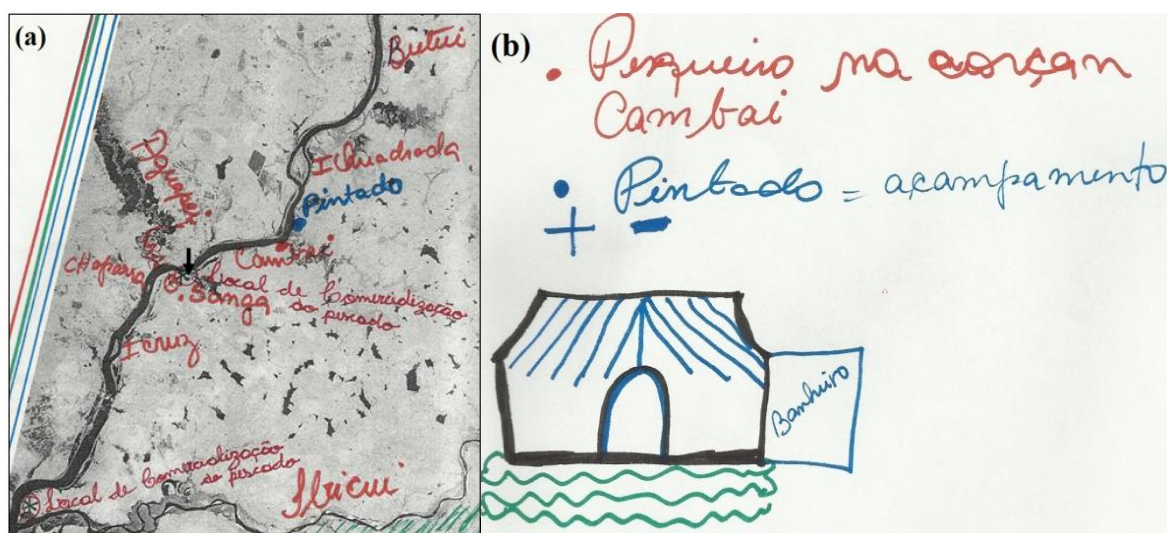 (a)
Butui
Aguapei
I Quadrada
Pintado
Cambai
Chaparra
Sanga
Local de Comercialização
do pescado
I cruz
Local de Comercialização
do pescado
Ibicui
(b)
Pesqueiro na
Cambai
Pintado = acampamento
Banheiro